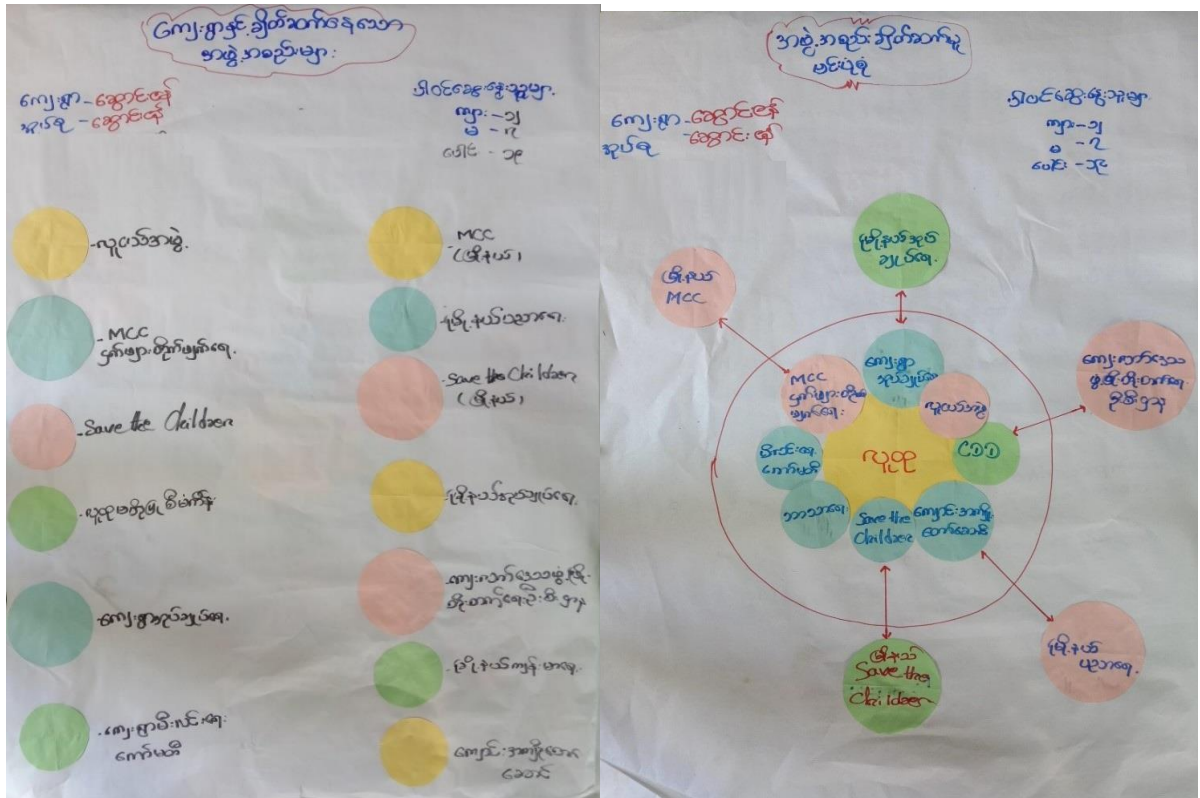 ကျေးရွာနှင့်ချိတ်ဆက်နေသော
အဖွဲ့အစည်းများ
ကျေးရွာ - ဆွောင်းဇန်
အုပ်စု - ဆွောင်းဇန်
ပါဝင်ဆွေးနွေးသူများ
ကျား - ၁၂
မ - ၇
ပေါင်း - ၁၉
- လူငယ်အဖွဲ့
- MCC
ငှက်ဖျားတိုက်ဖျက်ရေး
- Save the Children
- လူထုဗဟိုပြုစီမံကိန်း
- ကျေးရွာအုပ်ချုပ်ရေး
- ကျေးရွာမီးလင်းရေး
ကော်မတီ
MCC
- (မြို့နယ်)
- မြို့နယ်ပညာရေး
- Save the Children
(မြို့နယ်)
- မြို့နယ်အုပ်ချုပ်ရေး
- ကျေးလက်ဒေသဖွံ့ဖြိုး
တိုးတက်ရေးဦးစီးဌာန
- မြို့နယ်ကျန်းမာရေး
ကျောင်းအကျိုးတော်
ဆောင်
အဖွဲ့အစည်းချိတ်ဆက်မှု
မြင်းပုံစံ
ကျေးရွာ - ဆွောင်းဇန်
အုပ်စု - ဆွောင်းဇန်
ပါဝင်ဆွေးနွေးသူများ
ကျား - ၁၂
မ - ၇
ပေါင်း - ၁၉
မြို့နယ်အုပ်
ချုပ်ရေး
မြို့နယ်
MCC
ကျေးရွာ
အုပ်ချုပ်ရေး
MCC
ငှက်ဖျားတိုက်
ဖျက်ရေး
လူငယ်အဖွဲ့
ကျေးလက်ဒေသ
ဖွံ့ဖြိုးတိုးတက်ရေး
ဦးစီးဌာန
မီးလင်းရေး
ကော်မတီ
လူထု
CDD
ဘာသာရေး
Save the
Children
ကျောင်းအကျိုး
တော်ဆောင်
မြို့နယ်
ပညာရေး
မြို့နယ်
Save the
Children